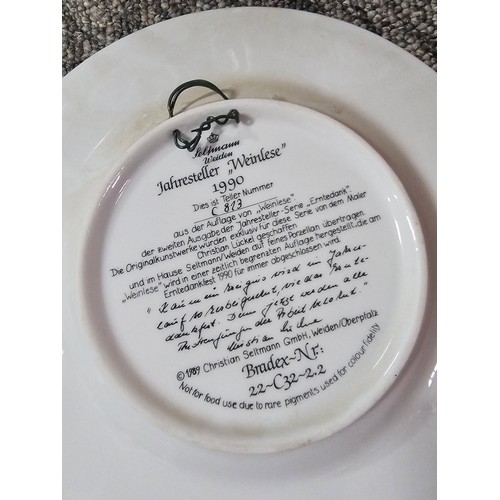 Seltmann
Weiden
Jahresteller „Weinlese"
1990
Dies ist Teller Nummer
C 813
aus der Auflage von „Weinlese"
der zweiten Ausgabe der Jahresteller-Serie „Erntedank".
Die Originalkunstwerke wurden exklusiv für diese Serie von dem Maler
Christian Lückel geschaffen
und im Hause Seltmann/Weiden auf feines Porzellan übertragen.
„Weinlese" wird in einer zeitlich begrenzten Auflage hergestellt, die am
Erntedankfest 1990 für immer abgeschlossen wird.
wird im Jahres-
lauf so
dankfest. Denn jetzt werden alle
der Arbeit belohnt."
©1989 Christian Seltmann GmbH, Weiden/Oberpfalz
Bradex-Nr.:
22-C32-2.2
Not for food use due to rare pigments used for colour fidelity